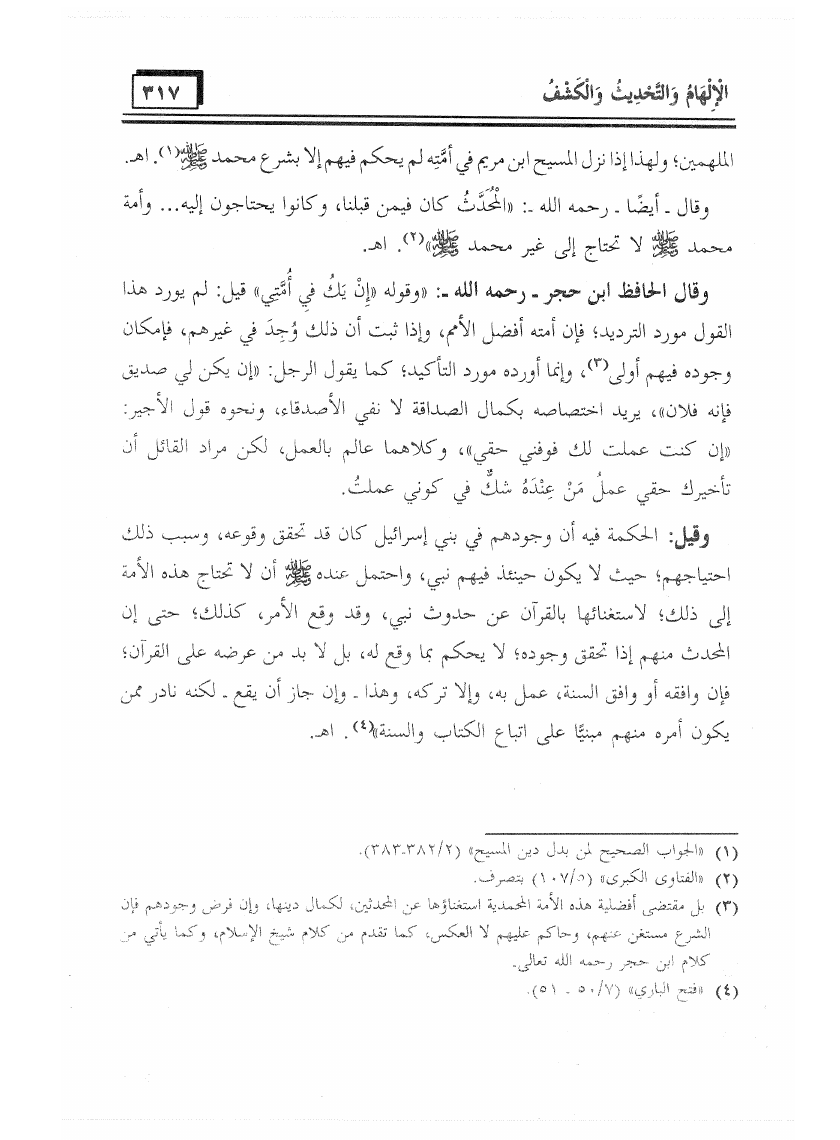 الْإِلْهَامُ وَالتَّحْدِيثُ وَالْكَشْفُ
٣١٧
الملهمين؛ ولهذا إذا نزل المسيح ابن مريم في أمَّته لم يحكم فيهم إلا بشرع محمد ﷺ(١). اهـ.
وقال ـ أيضًا ـ رحمه الله ـ: «الْمُحَدَّثُ كان فيمن قبلنا، وكانوا يحتاجون إليه... وأمة
محمد ﷺ لا تحتاج إلى غير محمد ﷺ»(٢). اهـ.
وقال الحافظ ابن حجر ـ رحمه الله ـ: «وقوله «إِنْ يَكُ فِي أُمَّتِي» قيل: لم يورد هذا
القول مورد الترديد؛ فإن أمته أفضل الأمم، وإذا ثبت أن ذلك وُجِدَ في غيرهم، فإمكان
وجوده فيهم أولى(٣)، وإنما أورده مورد التأكيد؛ كما يقول الرجل: «إن يكن لي صديق
فإنه فلان»، يريد اختصاصه بكمال الصداقة لا نفي الأصدقاء، ونحوه قول الأجير:
«إن كنت عملت لك فوفني حقي»، وكلاهما عالم بالعمل، لكن مراد القائل أن
تأخيرك حقي عملُ مَنْ عِنْدَهُ شكٌّ في كوني عملتُ.
وقيل: الحكمة فيه أن وجودهم في بني إسرائيل كان قد تحقق وقوعه، وسبب ذلك
احتياجهم؛ حيث لا يكون حينئذ فيهم نبي، واحتمل عنده ﷺ أن لا تحتاج هذه الأمة
إلى ذلك؛ لاستغنائها بالقرآن عن حدوث نبي، وقد وقع الأمر، كذلك؛ حتى إن
المحدث منهم إذا تحقق وجوده؛ لا يحكم بما وقع له، بل لا بد من عرضه على القرآن؛
فإن وافقه أو وافق السنة، عمل به، وإلا تركه، وهذا ـ وإن جاز أن يقع ـ لكنه نادر ممن
يكون أمره منهم مبنيًّا على اتباع الكتاب والسنة»(٤). اهـ.
(١) «الجواب الصحيح لمن بدل دين المسيح» (٣٨٢/٢ـ٣٨٣).
(٢) «الفتاوى الكبرى» (١٠٧/٥) بتصرف.
(٣) بل مقتضى أفضلية هذه الأمة المحمدية استغناؤها عن المحدثين، لكمال دينها، وإن فرض وجودهم فإن
الشرع مستغن عنهم، وحاكم عليهم لا العكس، كما تقدم من كلام شيخ الإسلام، وكما يأتي من
كلام ابن حجر رحمه الله تعالى.
(٤) «فتح الباري» (٥٠/٧ ـ ٥١).